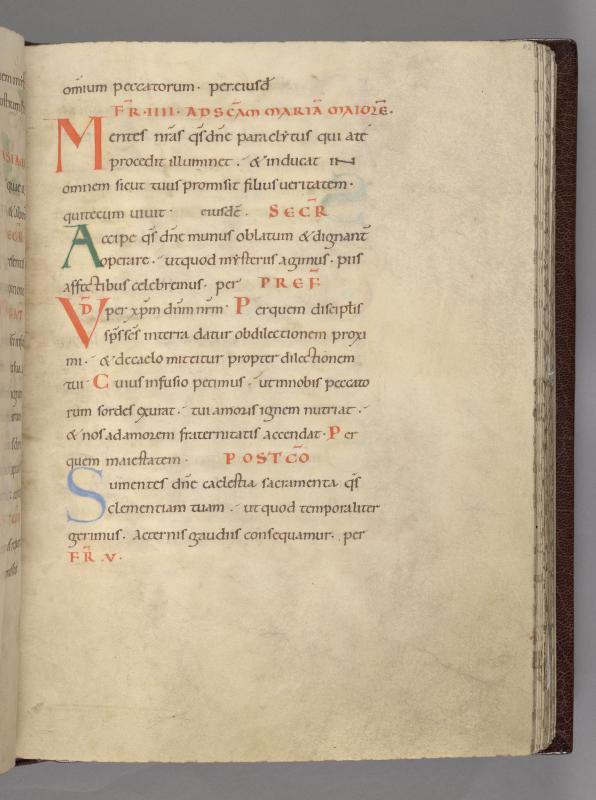 omium peccatorum· per.eiusđ
FR̄·IIII· AD SC̄AM MARIĀ MAIORĒ·
Mentes nr̄as qs̄ dn̄e paraclytus qui atē
procedit illuminet· & inducat IN
omnem sicut tuus promisit filius ueritatem·
quitecum uiuit· eiusdē· SECR̄
Accipe qs̄ dn̄e munus oblatum & dignant̄
operare· ut quod mysteriis agimus· piis
affectibus celebremus· per PREF̄
VD̄ per xp̄m dn̄m nr̄m· Per quem discipl̄is
sp̄s sc̄s in terra datur ob dilectionem proxi
mi· & de caelo mittitur propter dilectionem
tui· Cuius infusio petimus· ut in nobis peccato
rum sordes exurat· tui amoris ignem nutriat·
& nos ad amorem fraternitatis accendat· Per
quem maiestatem· POSTCŌ
Sumentes dn̄e caelestia sacramenta qs̄
clementiam tuam· ut quod temporaliter
gerimus· Aeternis gaudiis consequamur· per
FR̄ V·